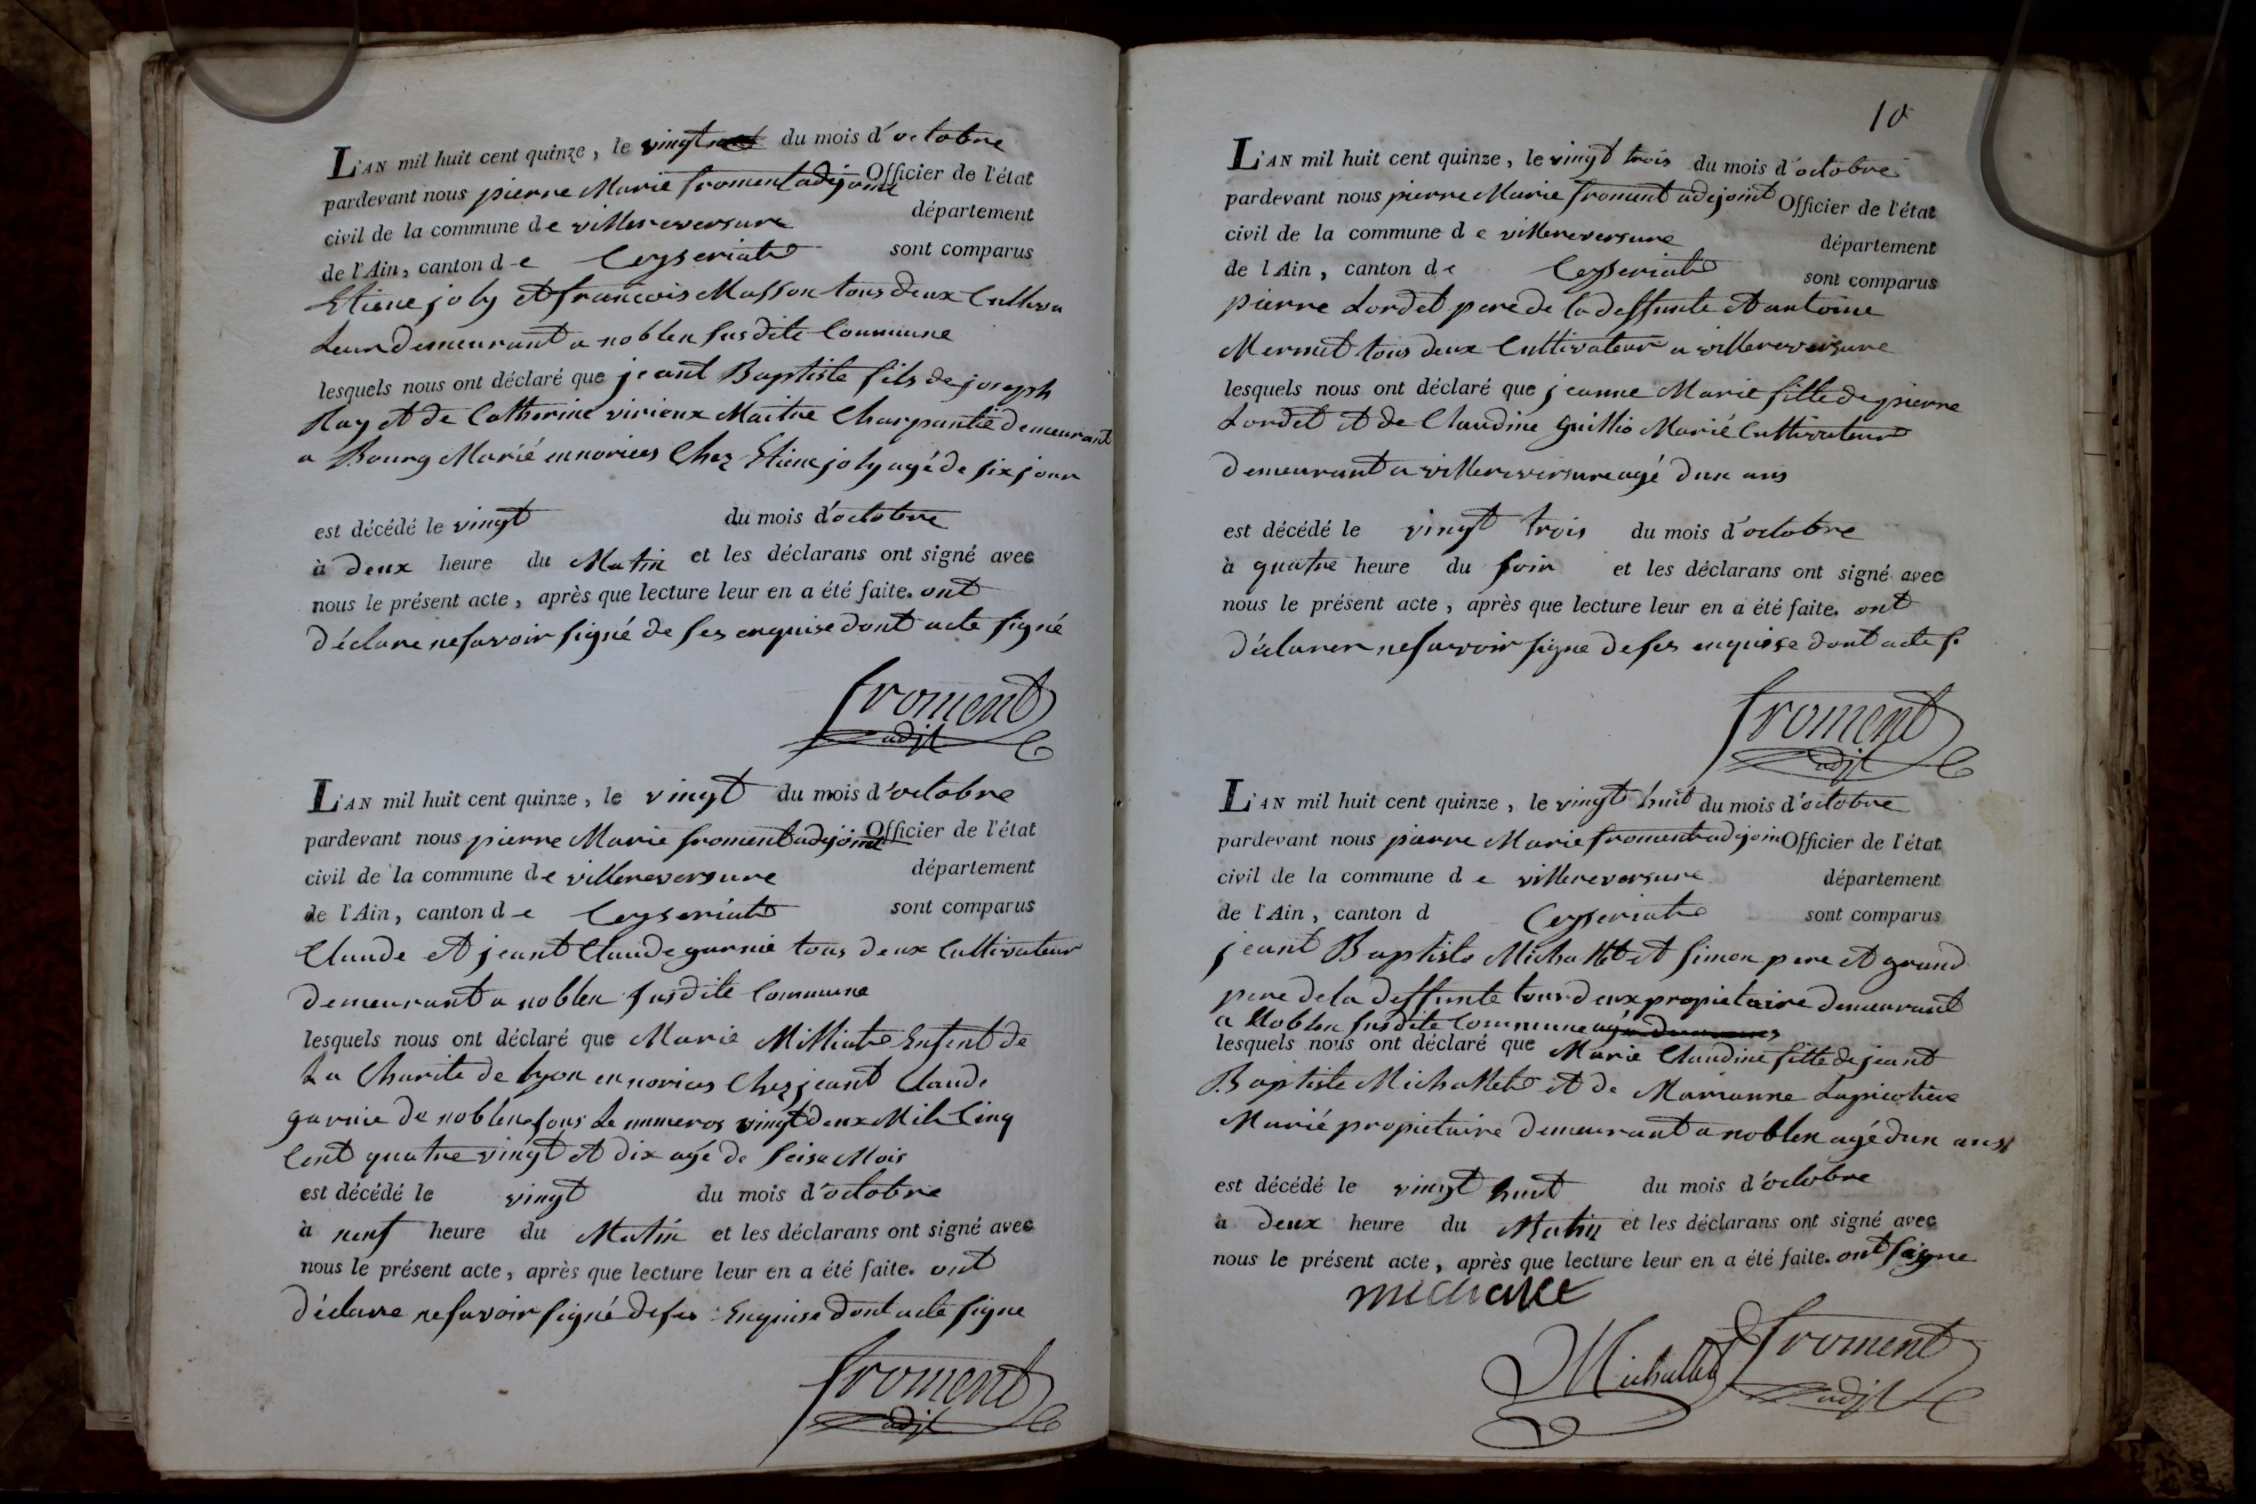 L'AN mil huit cent quinze, le vingt du mois d'octobre
pardevant nous pierre Marie froment adijoint Officier de l'état
civil de la commune de villereversure département
de l'Ain, canton de Ceyseriat sont comparus
Etiene joly et francois Masson tous deux Cultiva
leur demeurant a noblen susdite Commune
lesquels nous ont déclaré que jeant Baptiste fils de joseph
Ray et de Catherine virieux Maitre Charpantié demeurant
a Bourg Marié en norices Chez Etiene joly agé de six jour
est décédé le vingt du mois d'octobre
à deux heure du Matin et les déclarans ont signé avec
nous le présent acte, après que lecture leur en a été faite. ont
déclare ne savoir signé de ses enquise dont acte signé
froment
adjt
L'AN mil huit cent quinze, le vingt du mois d'octobre
pardevant nous pierre Marie froment adijoint Officier de l'état
civil de la commune de villereversure département
de l'Ain, canton de Ceyseriat sont comparus
Claude et jeant Claude garnie tous deux Cultivateur
demeurant a noblen susdite Commune
lesquels nous ont déclaré que Marie Milliat Enfent de
La Charite de lyon en norices Chez jeant Claude
garnie de noblen sous le numeros vingt deux Mile Cinq
Cent quatre vingt et dix agé de seise Mois
est décédé le vingt du mois d'octobre
à neuf heure du Matin et les déclarans ont signé avec
nous le présent acte, après que lecture leur en a été faite. ont
déclare ne savoir signé de ses Enquise dont acte signe
froment
adjt
10
L'AN mil huit cent quinze, le vingt trois du mois d'octobre
pardevant nous pierre Marie froment adejoint Officier de l'état
civil de la commune de villereversure département
de l'Ain, canton de Ceyseriat sont comparus
pierre Lordet pere de la deffunte et antoine
Mermet tous deux Cultivateur a villereversure
lesquels nous ont déclaré que jeanne Marie fille de pierre
Lordet et de Claudine guillio Marié Cultivateur
demeurant a villereversure agé dun ans
est décédé le vingt trois du mois d'octobre
à quatre heure du soir et les déclarans ont signé avec
nous le présent acte, après que lecture leur en a été faite. ont
déclarer ne savoir signe de ses enquise dont acte s.
froment
adjt
L'AN mil huit cent quinze, le vingt huit du mois d'octobre
pardevant nous pierre Marie froment adjoin Officier de l'état
civil de la commune de villereversure département
de l'Ain, canton d Ceyseriat sont comparus
jeant Baptiste Michallet et simon pere et grand
pere de la deffunte tous deux propietaire demeurant
a Noblen susdite Commune
lesquels nous ont déclaré que Marie Claudine fille de jeant
Baptiste Michallet et de Marianne
Marié propietaire demeurant a noblen agé dun ans
est décédé le vingt huit du mois d'octobre
à deux heure du Matin et les déclarans ont signé avec
nous le présent acte, après que lecture leur en a été faite. ont signe
michallet
Michallet froment
adjt